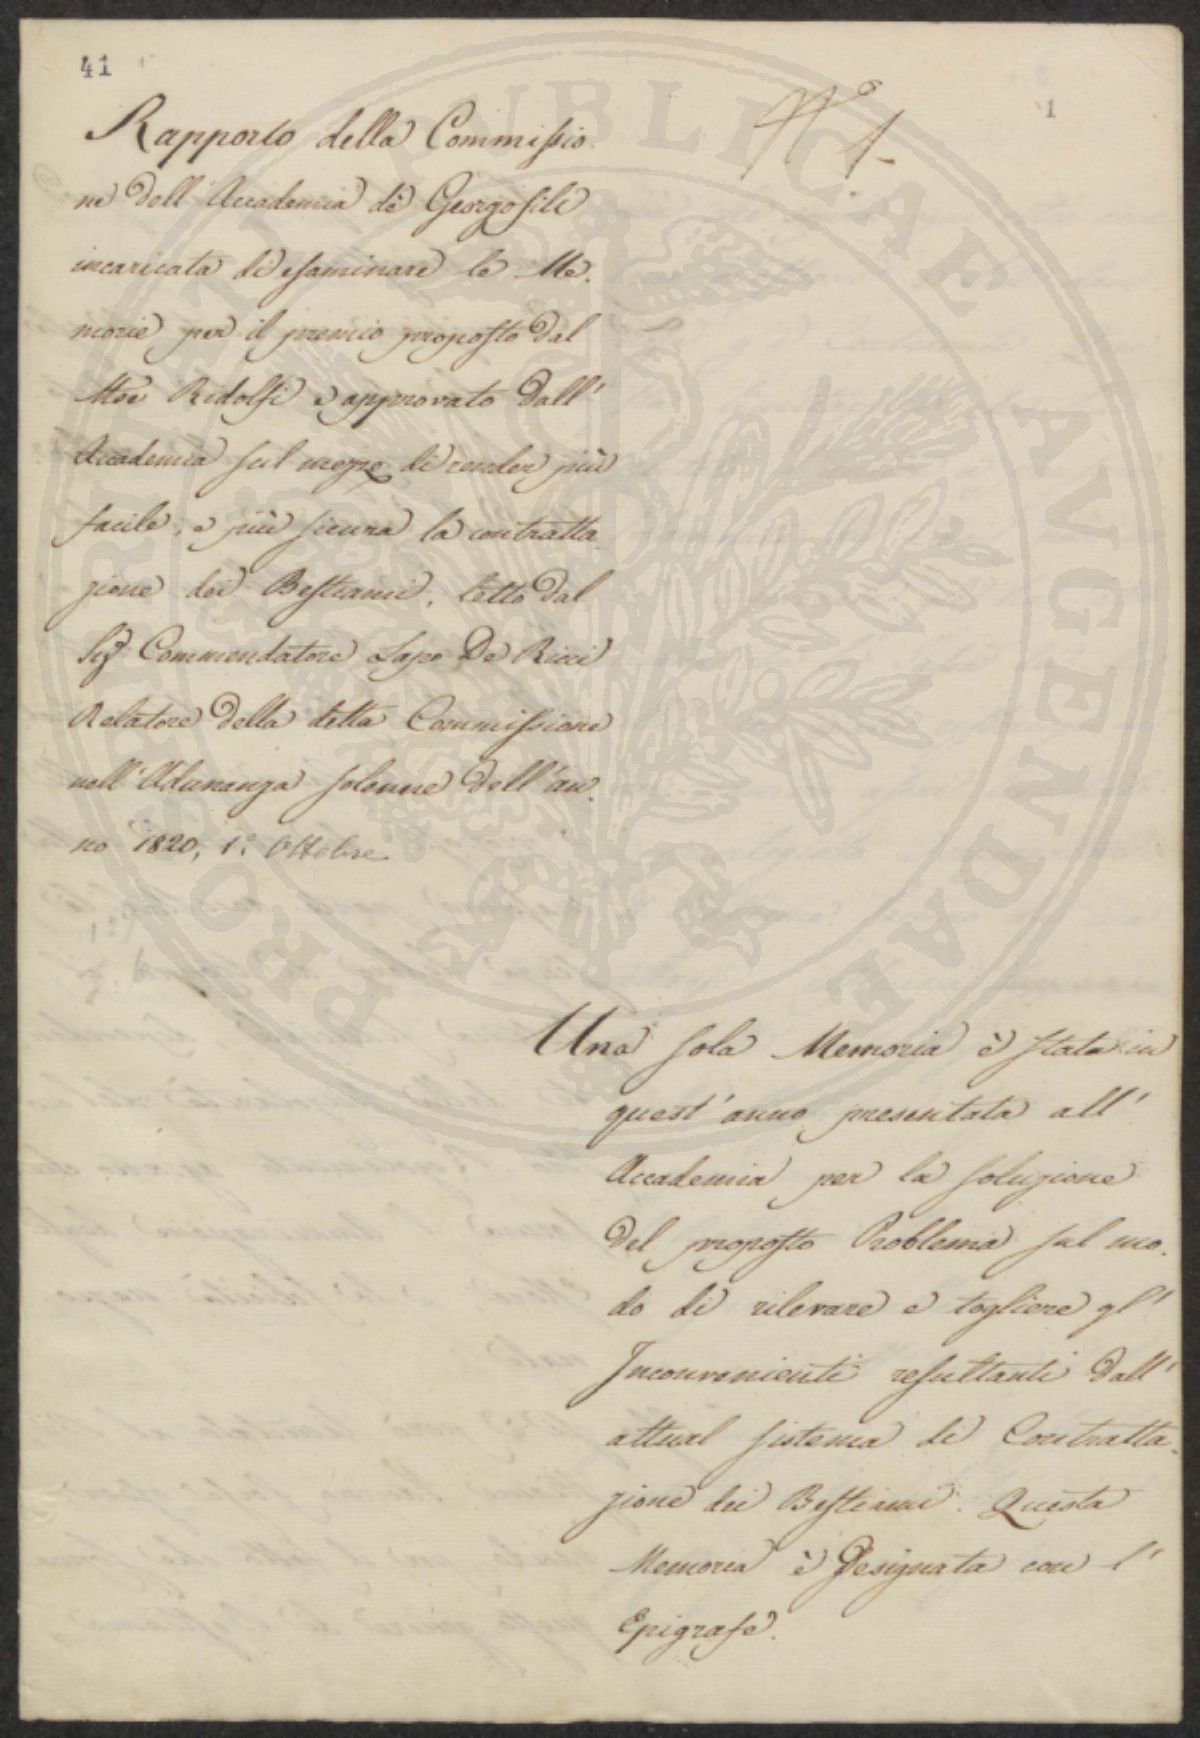 41
N.° 1.
1
Rapporto della Commissio-
ne dell'Accademia dè Georgofili
incaricata di esaminare le Me-
morie per il premio proposto dal
Mse Ridolfi e approvato dall'
Accademia sul mezzo di render più
facile, e più sicura la contratta-
zione dei Bestiami, letto dal
Sig Commendatore Lapo De Ricci
Relatore della detta Commissione
nell'Adunanza solenne dell'an-
no 1820, 1.° Ottobre
Una sola Memoria è stata in
quest'anno presentata all'
Accademia per la soluzione
del proposto Problema sul mo-
do di rilevare e togliere gl'
Inconvenienti resultanti dall'
attual sistema di Contratta-
zione dei Bestiami. Questa
Memoria è Designata con l'
Epigrafe.
PROSPERITATI PUBLICAE AVGENDAE